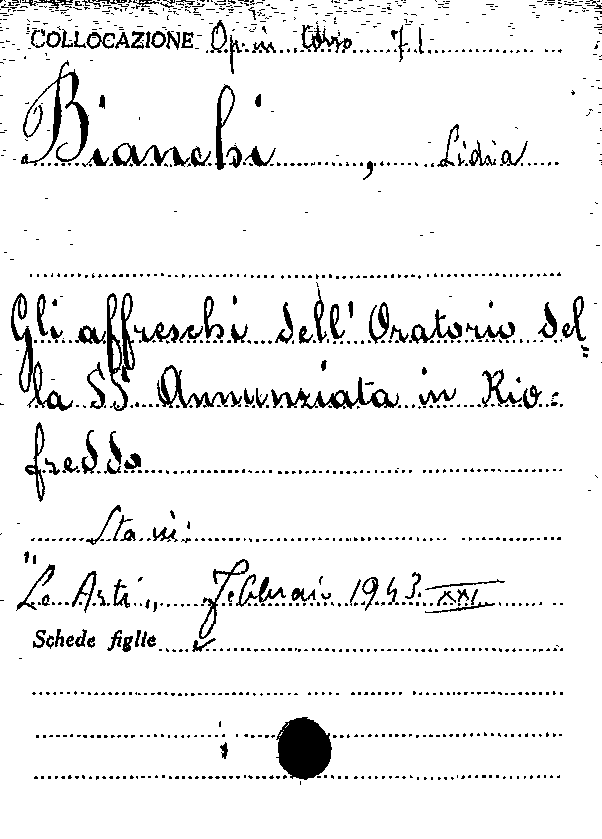 COLLOCAZIONE Op. in Corso 71
Bianchi, Lidia
Gli affreschi dell' Oratorio del=
la SS. Annunziata in Rio=
freddo
Sta in:
"Le Arti„ Febbraio 1943 XXI
Schede figlie